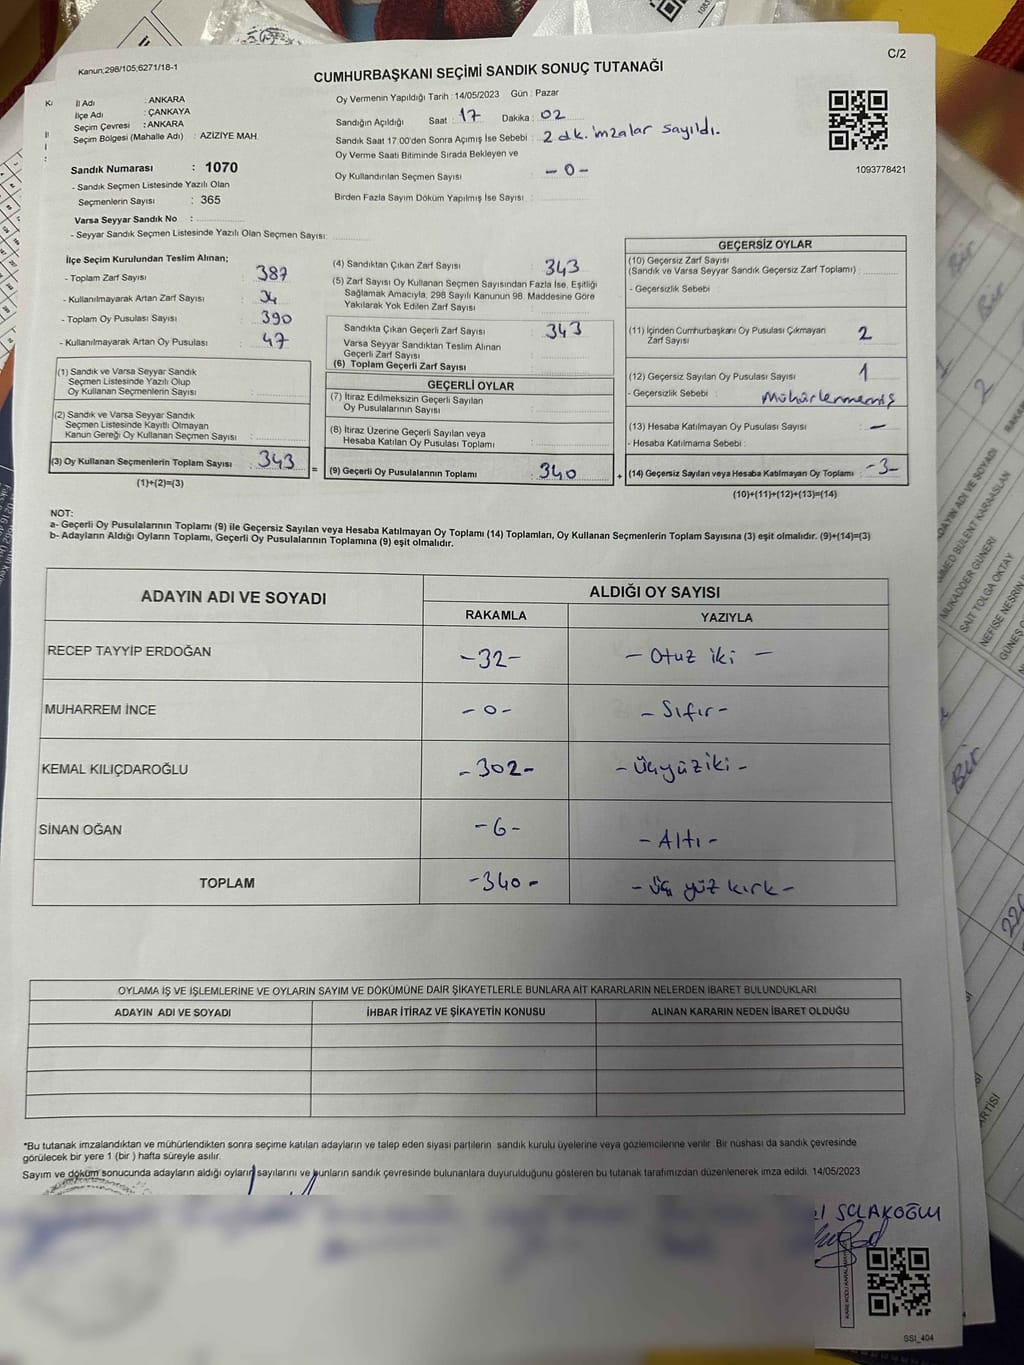 C/2
Kanun:298/105;6271/18-1
CUMHURBAŞKANI SEÇİMİ SANDIK SONUÇ TUTANAĞI
İl Adı : ANKARA
İlçe Adı : ÇANKAYA
Seçim Çevresi : ANKARA
Seçim Bölgesi (Mahalle Adı) : AZİZİYE MAH.
Sandık Numarası : 1070
- Sandık Seçmen Listesinde Yazılı Olan
Seçmenlerin Sayısı : 365
Varsa Seyyar Sandık No :
- Seyyar Sandık Seçmen Listesinde Yazılı Olan Seçmen Sayısı:
Oy Vermenin Yapıldığı Tarih : 14/05/2023 Gün : Pazar
Sandığın Açıldığı Saat : 17 Dakika : 02
Sandık Saat 17.00'den Sonra Açımış İse Sebebi : 2 dk. imzalar sayıldı.
Oy Verme Saati Bitiminde Sırada Bekleyen ve
Oy Kullandırılan Seçmen Sayısı : - 0 -
Birden Fazla Sayım Döküm Yapılmış İse Sayısı :
1093778421
İlçe Seçim Kurulundan Teslim Alınan;
- Toplam Zarf Sayısı : 387
- Kullanılmayarak Artan Zarf Sayısı : 34
- Toplam Oy Pusulası Sayısı : 390
- Kullanılmayarak Artan Oy Pusulası : 47
(1) Sandık ve Varsa Seyyar Sandık
Seçmen Listesinde Yazılı Olup
Oy Kullanan Seçmenlerin Sayısı :
(2) Sandık ve Varsa Seyyar Sandık
Seçmen Listesinde Kayıtlı Olmayan
Kanun Gereği Oy Kullanan Seçmen Sayısı :
(3) Oy Kullanan Seçmenlerin Toplam Sayısı : 343
(1)+(2)=(3)
(4) Sandıktan Çıkan Zarf Sayısı : 343
(5) Zarf Sayısı Oy Kullanan Seçmen Sayısından Fazla İse, Eşitliği
Sağlamak Amacıyla, 298 Sayılı Kanunun 98. Maddesine Göre
Yakılarak Yok Edilen Zarf Sayısı :
Sandıkta Çıkan Geçerli Zarf Sayısı : 343
Varsa Seyyar Sandıktan Teslim Alınan
Geçerli Zarf Sayısı :
(6) Toplam Geçerli Zarf Sayısı :
GEÇERLİ OYLAR
(7) İtiraz Edilmeksizin Geçerli Sayılan
Oy Pusulalarının Sayısı :
(8) İtiraz Üzerine Geçerli Sayılan veya
Hesaba Katılan Oy Pusulası Toplamı :
= (9) Geçerli Oy Pusulalarının Toplamı : 340 +
GEÇERSİZ OYLAR
(10) Geçersiz Zarf Sayısı
(Sandık ve Varsa Seyyar Sandık Geçersiz Zarf Toplamı) :
- Geçersizlik Sebebi :
(11) İçinden Cumhurbaşkanı Oy Pusulası Çıkmayan
Zarf Sayısı : 2
(12) Geçersiz Sayılan Oy Pusulası Sayısı : 1
- Geçersizlik Sebebi : Mühürlenmemiş
(13) Hesaba Katılmayan Oy Pusulası Sayısı : -
- Hesaba Katılmama Sebebi :
(14) Geçersiz Sayılan veya Hesaba Katılmayan Oy Toplamı : -3-
(10)+(11)+(12)+(13)=(14)
NOT:
a- Geçerli Oy Pusulalarının Toplamı (9) ile Geçersiz Sayılan veya Hesaba Katılmayan Oy Toplamı (14) Toplamları, Oy Kullanan Seçmenlerin Toplam Sayısına (3) eşit olmalıdır. (9)+(14)=(3)
b- Adayların Aldığı Oyların Toplamı, Geçerli Oy Pusulalarının Toplamına (9) eşit olmalıdır.
ADAYIN ADI VE SOYADI
ALDIĞI OY SAYISI
RAKAMLA YAZIYLA
RECEP TAYYİP ERDOĞAN -32- - Otuz iki -
MUHARREM İNCE - 0 - - Sıfır -
KEMAL KILIÇDAROĞLU - 302 - - Üçyüziki -
SİNAN OĞAN - 6 - - Altı -
TOPLAM - 340 - - Üç yüz kırk -
OYLAMA İŞ VE İŞLEMLERİNE VE OYLARIN SAYIM VE DÖKÜMÜNE DAİR ŞİKAYETLERLE BUNLARA AİT KARARLARIN NELERDEN İBARET BULUNDUKLARI
ADAYIN ADI VE SOYADI İHBAR İTİRAZ VE ŞİKAYETİN KONUSU ALINAN KARARIN NEDEN İBARET OLDUĞU
*Bu tutanak imzalandıktan ve mühürlendikten sonra seçime katılan adayların ve talep eden siyasi partilerin sandık kurulu üyelerine veya gözlemcilerine verilir. Bir nüshası da sandık çevresinde
görülecek bir yere 1 (bir ) hafta süreyle asılır.
Sayım ve döküm sonucunda adayların aldığı oyların sayılarını ve bunların sandık çevresinde bulunanlara duyurulduğunu gösteren bu tutanak tarafımızdan düzenlenerek imza edildi. 14/05/2023
SOLAKOĞLU
SSI_404
ADAYIN ADI VE SOYADI
AHMED BÜLENT KARAASLAN
MUKADDER GÜNERİ
SAİT TOLGA OKTAY
NEFİSE NESRİN
Bir
Bir
2
Bir